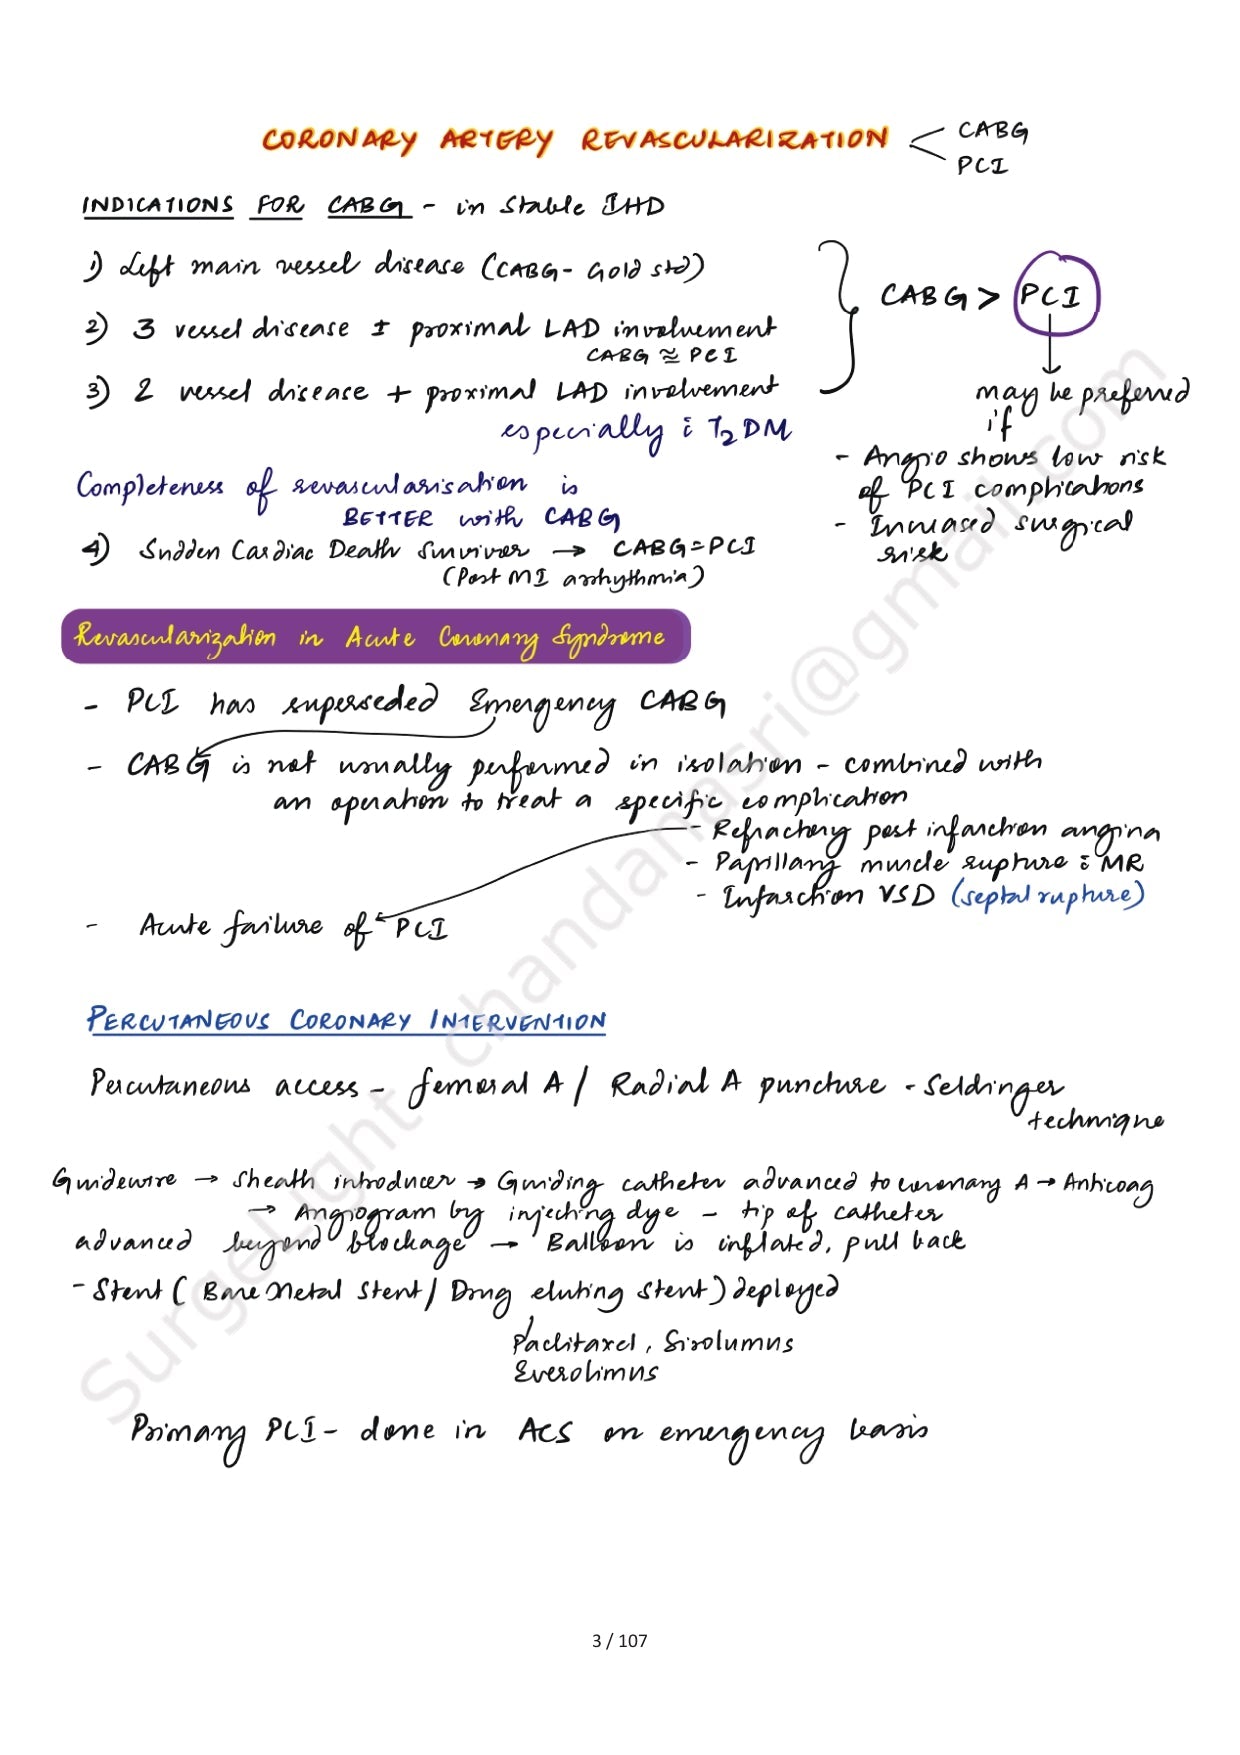 CORONARY ARTERY REVASCULARIZATION
CABG
PCI
INDICATIONS FOR CABG - in stable IHD
1) Left main vessel disease (CABG - Gold std)
2) 3 vessel disease ± proximal LAD involvement
CABG ≈ PCI
3) 2 vessel disease + proximal LAD involvement
especially c̄ T2DM
CABG > PCI
may be preferred
if
- Angio shows low risk
of PCI complications
- Increased surgical
risk
Completeness of revascularisation is
BETTER with CABG
4) Sudden Cardiac Death Survivor → CABG = PCI
(Post MI arrhythmia)
Revascularization in Acute Coronary Syndrome
- PCI has superseded Emergency CABG
- CABG is not usually performed in isolation - combined with
an operation to treat a specific complication
- Refractory post infarction angina
- Papillary muscle rupture c̄ MR
- Infarction VSD (septal rupture)
- Acute failure of PCI
PERCUTANEOUS CORONARY INTERVENTION
Percutaneous access - femoral A / Radial A puncture - Seldinger
technique
Guidewire → Sheath introducer → Guiding catheter advanced to coronary A → Anticoag
→ Angiogram by injecting dye - tip of catheter
advanced beyond blockage → Balloon is inflated, pull back
- Stent (Bare Metal Stent / Drug eluting stent) deployed
Paclitaxel, Sirolumus
Everolimus
Primary PCI - done in ACS on emergency basis
SurgeLight chandanasri@gmail.com
3 / 107